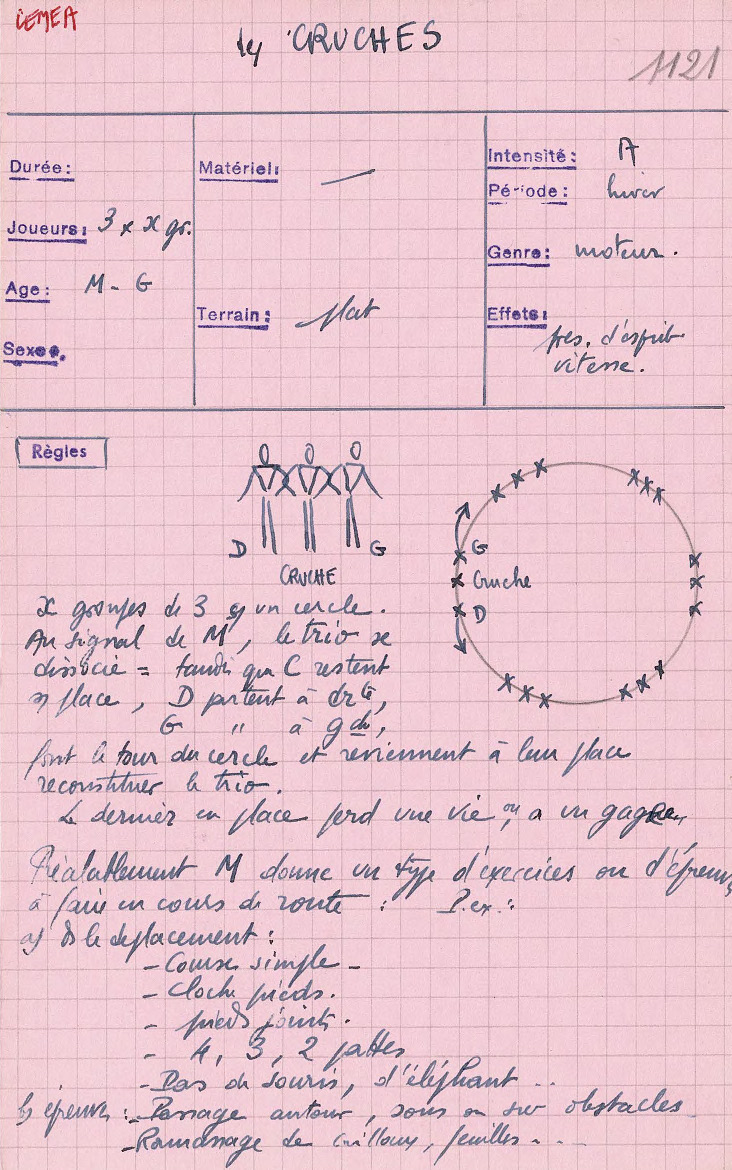 CEMEA
les CRUCHES
1121
Durée:
Matériel: —
Intensité: A
Période: hiver
Joueurs: 3 x X gr.
Genre: moteur.
Age: M - G
Terrain: plat
Effets: pres. d'esprit
vitesse.
Sexe
Règles
D G
CRUCHE
G
Cruche
D
X groupes de 3 s/ un cercle.
Au signal de M, le trio se
dissocie = tandis que C restent
s/ place, D partent à drte,
G " à gche,
font le tour du cercle et reviennent à leur place
reconstituer le trio.
Le dernier en place perd une vie ou a un gage
Préalablement M donne un type d'exercices ou d'épreuves
à faire en cours de route : P.ex.:
a) ds le déplacement :
- Course simple -
- Cloche pieds.
- pieds joints.
- 4, 3, 2 pattes
- Pas de souris, d'éléphant ..
b) épreuves : - Passage autour, sous ou sur obstacles
- Ramassage de cailloux, feuilles - ...